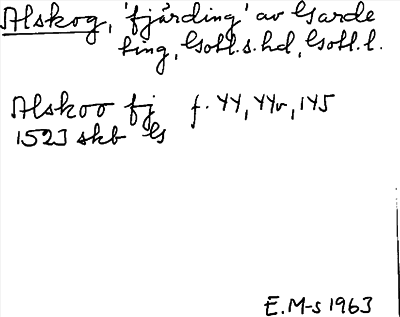 Alskog, 'fjärding' av Garde
ting, Gotl.s.hd, Gotl.l.
Alskoo fj f. 44, 44v, 145
1523 skb G
E.M-s 1963